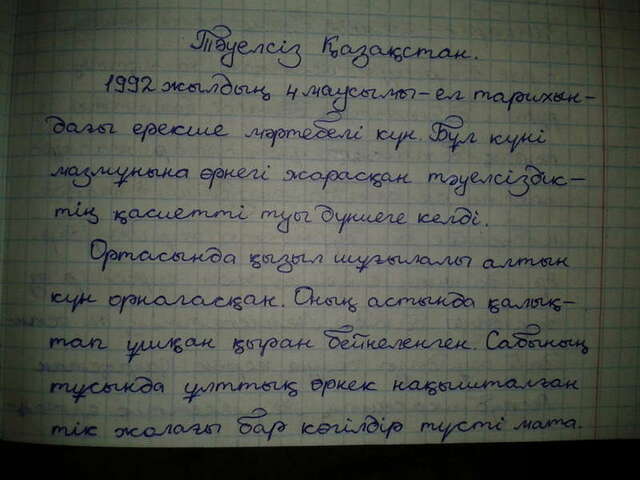 Тәуелсіз Қазақстан.
1992 жылдың 4 маусымы - ел тарихын-
дағы ерекше мәртебелі күн. Бұл күні
мазмұнына өрнегі жарасқан тәуелсіздік-
тің қасиетті туы дүниеге келді.
Ортасында қызыл шұғылалы алтын
күн орналасқан. Оның астында қалық-
тап ұшқан қыран бейнеленген. Сабының
тұсында ұлттық өрнек нақышталған
тік жолағы бар көгілдір түсті мата.